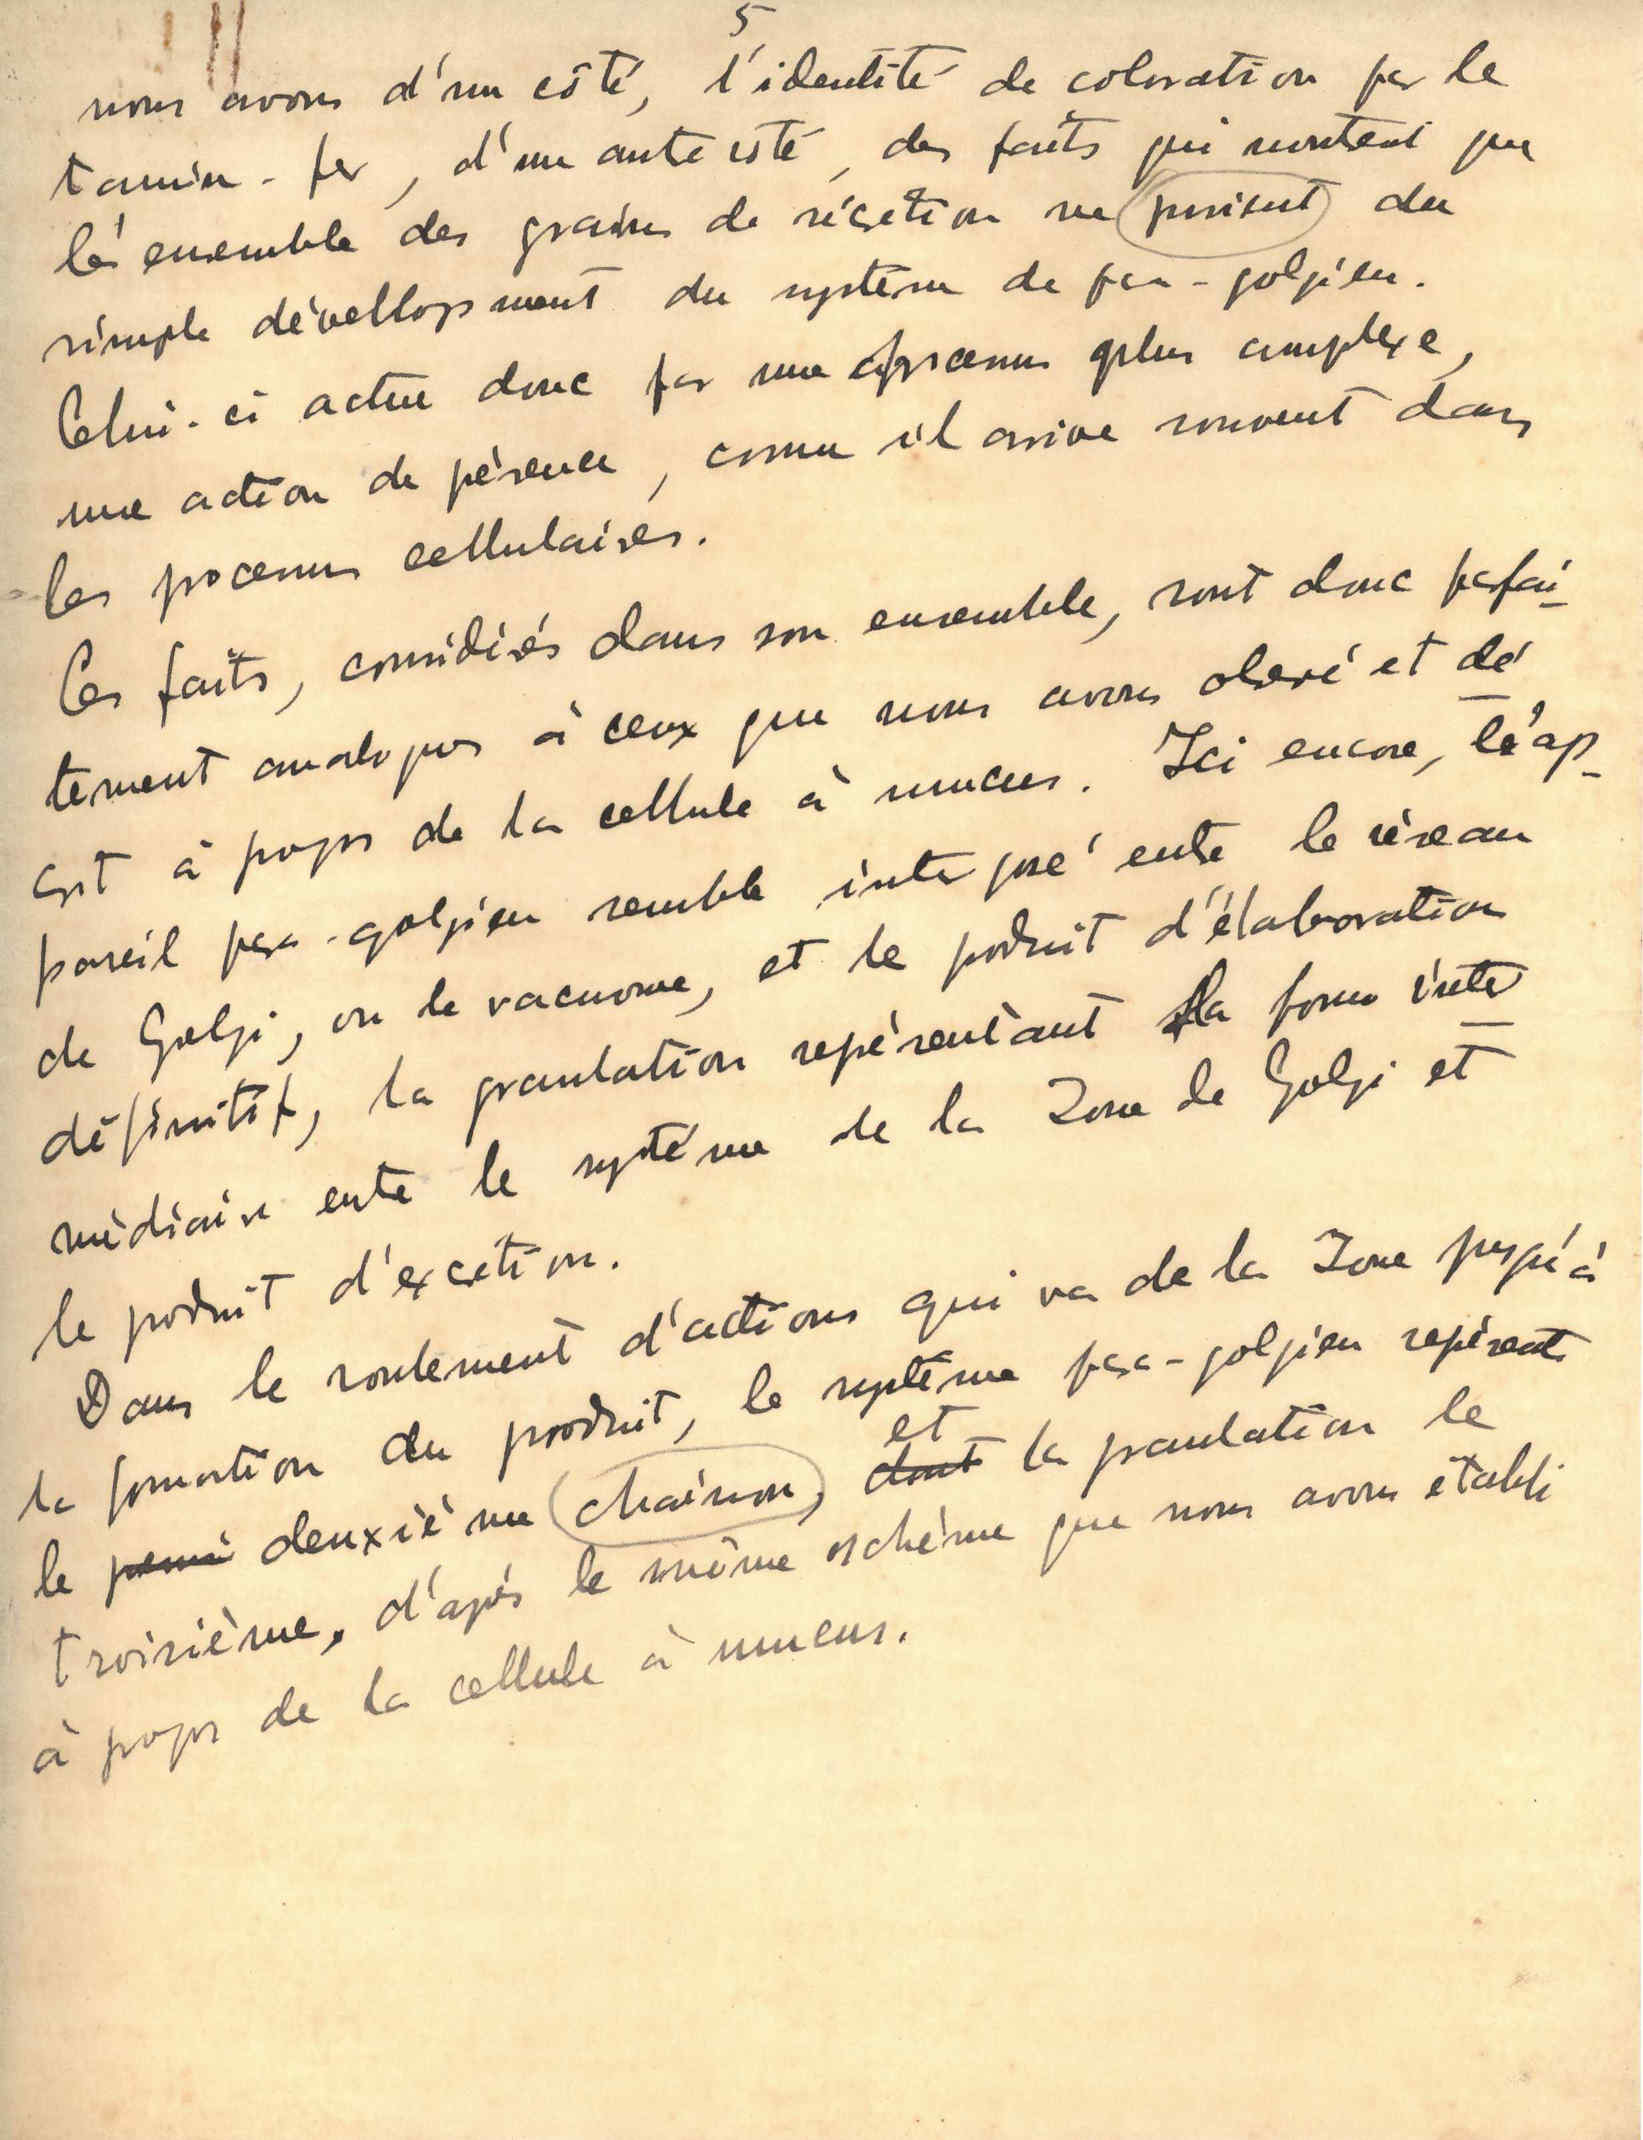 5
nous avons d'un côté, l'identité de coloration par le
tannin-fer, d'un autre côté, des faits qui montrent que
l'ensemble des grains de sécrétion ne du
simple dévellopement du système de para-golgien.
Celui-ci actue donc par une processus plus complexe,
une action de présence, comme il arrive souvent dans
les processus cellulaires.
Ces faits, considérés dans son ensemble, sont donc parfai-
tement analogues à ceux que nous avons observé et dé-
crit à propos de la cellule à mucus. Ici encore, l'ap-
pareil para-golgien semble interposé entre le réseau
de Golgi, ou le vacuome, et le produit d'élaboration
définitif, la granulation représentant la forme inter-
médiaire entre le système de la Zone de Golgi et
le produit d'excrétion.
Dans le roulement d'actions qui va de la Zone à
la formation du produit, le système para-golgien represente
le premi deuxième chaînon, dont et la granulation le
troisième, d'après le même schème que nous avons établi
à propos de la cellule à mucus.